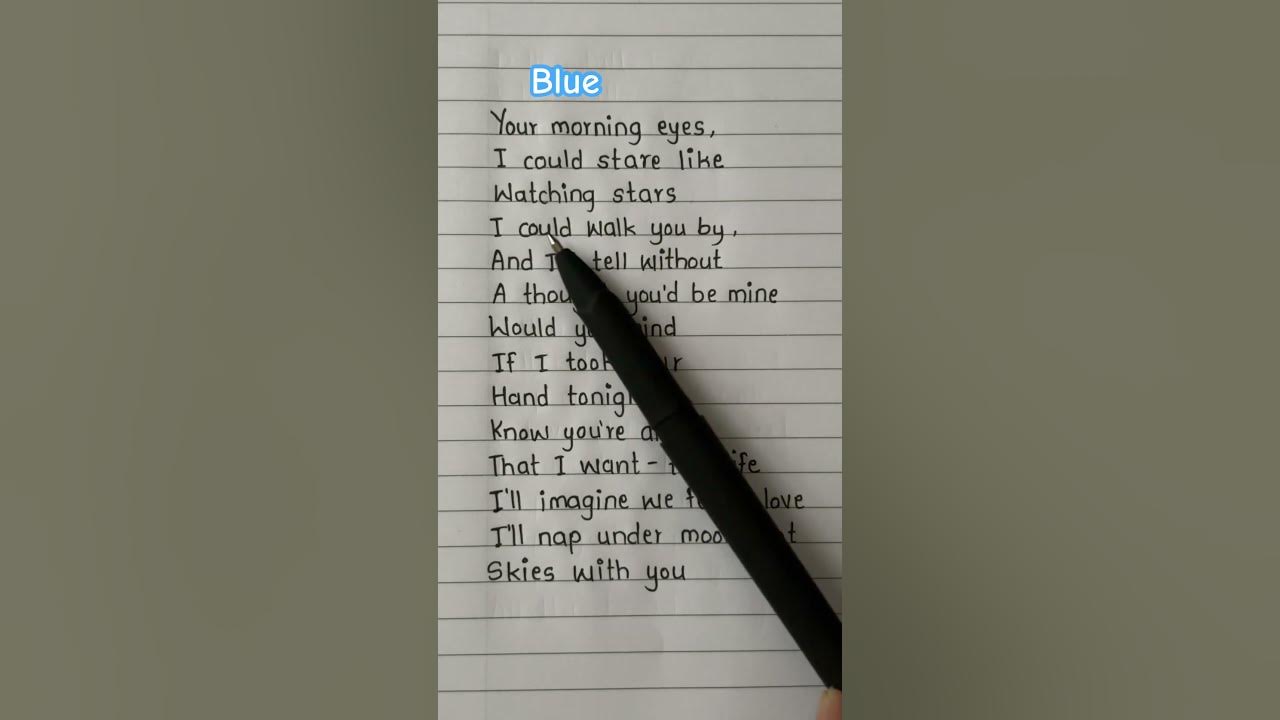 Blue
Your morning eyes,
I could stare like
Watching stars
I could walk you by,
And tell without
A you'd be mine
Would
If I
Hand
Know you're
That I want -
I'll imagine we love
I'll nap under
Skies with you